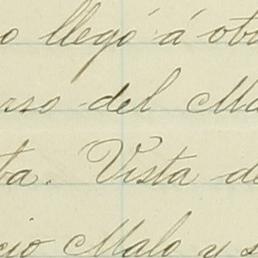 o llegó á ob
rso del Ma
ta. Vista de
cio Malo y s